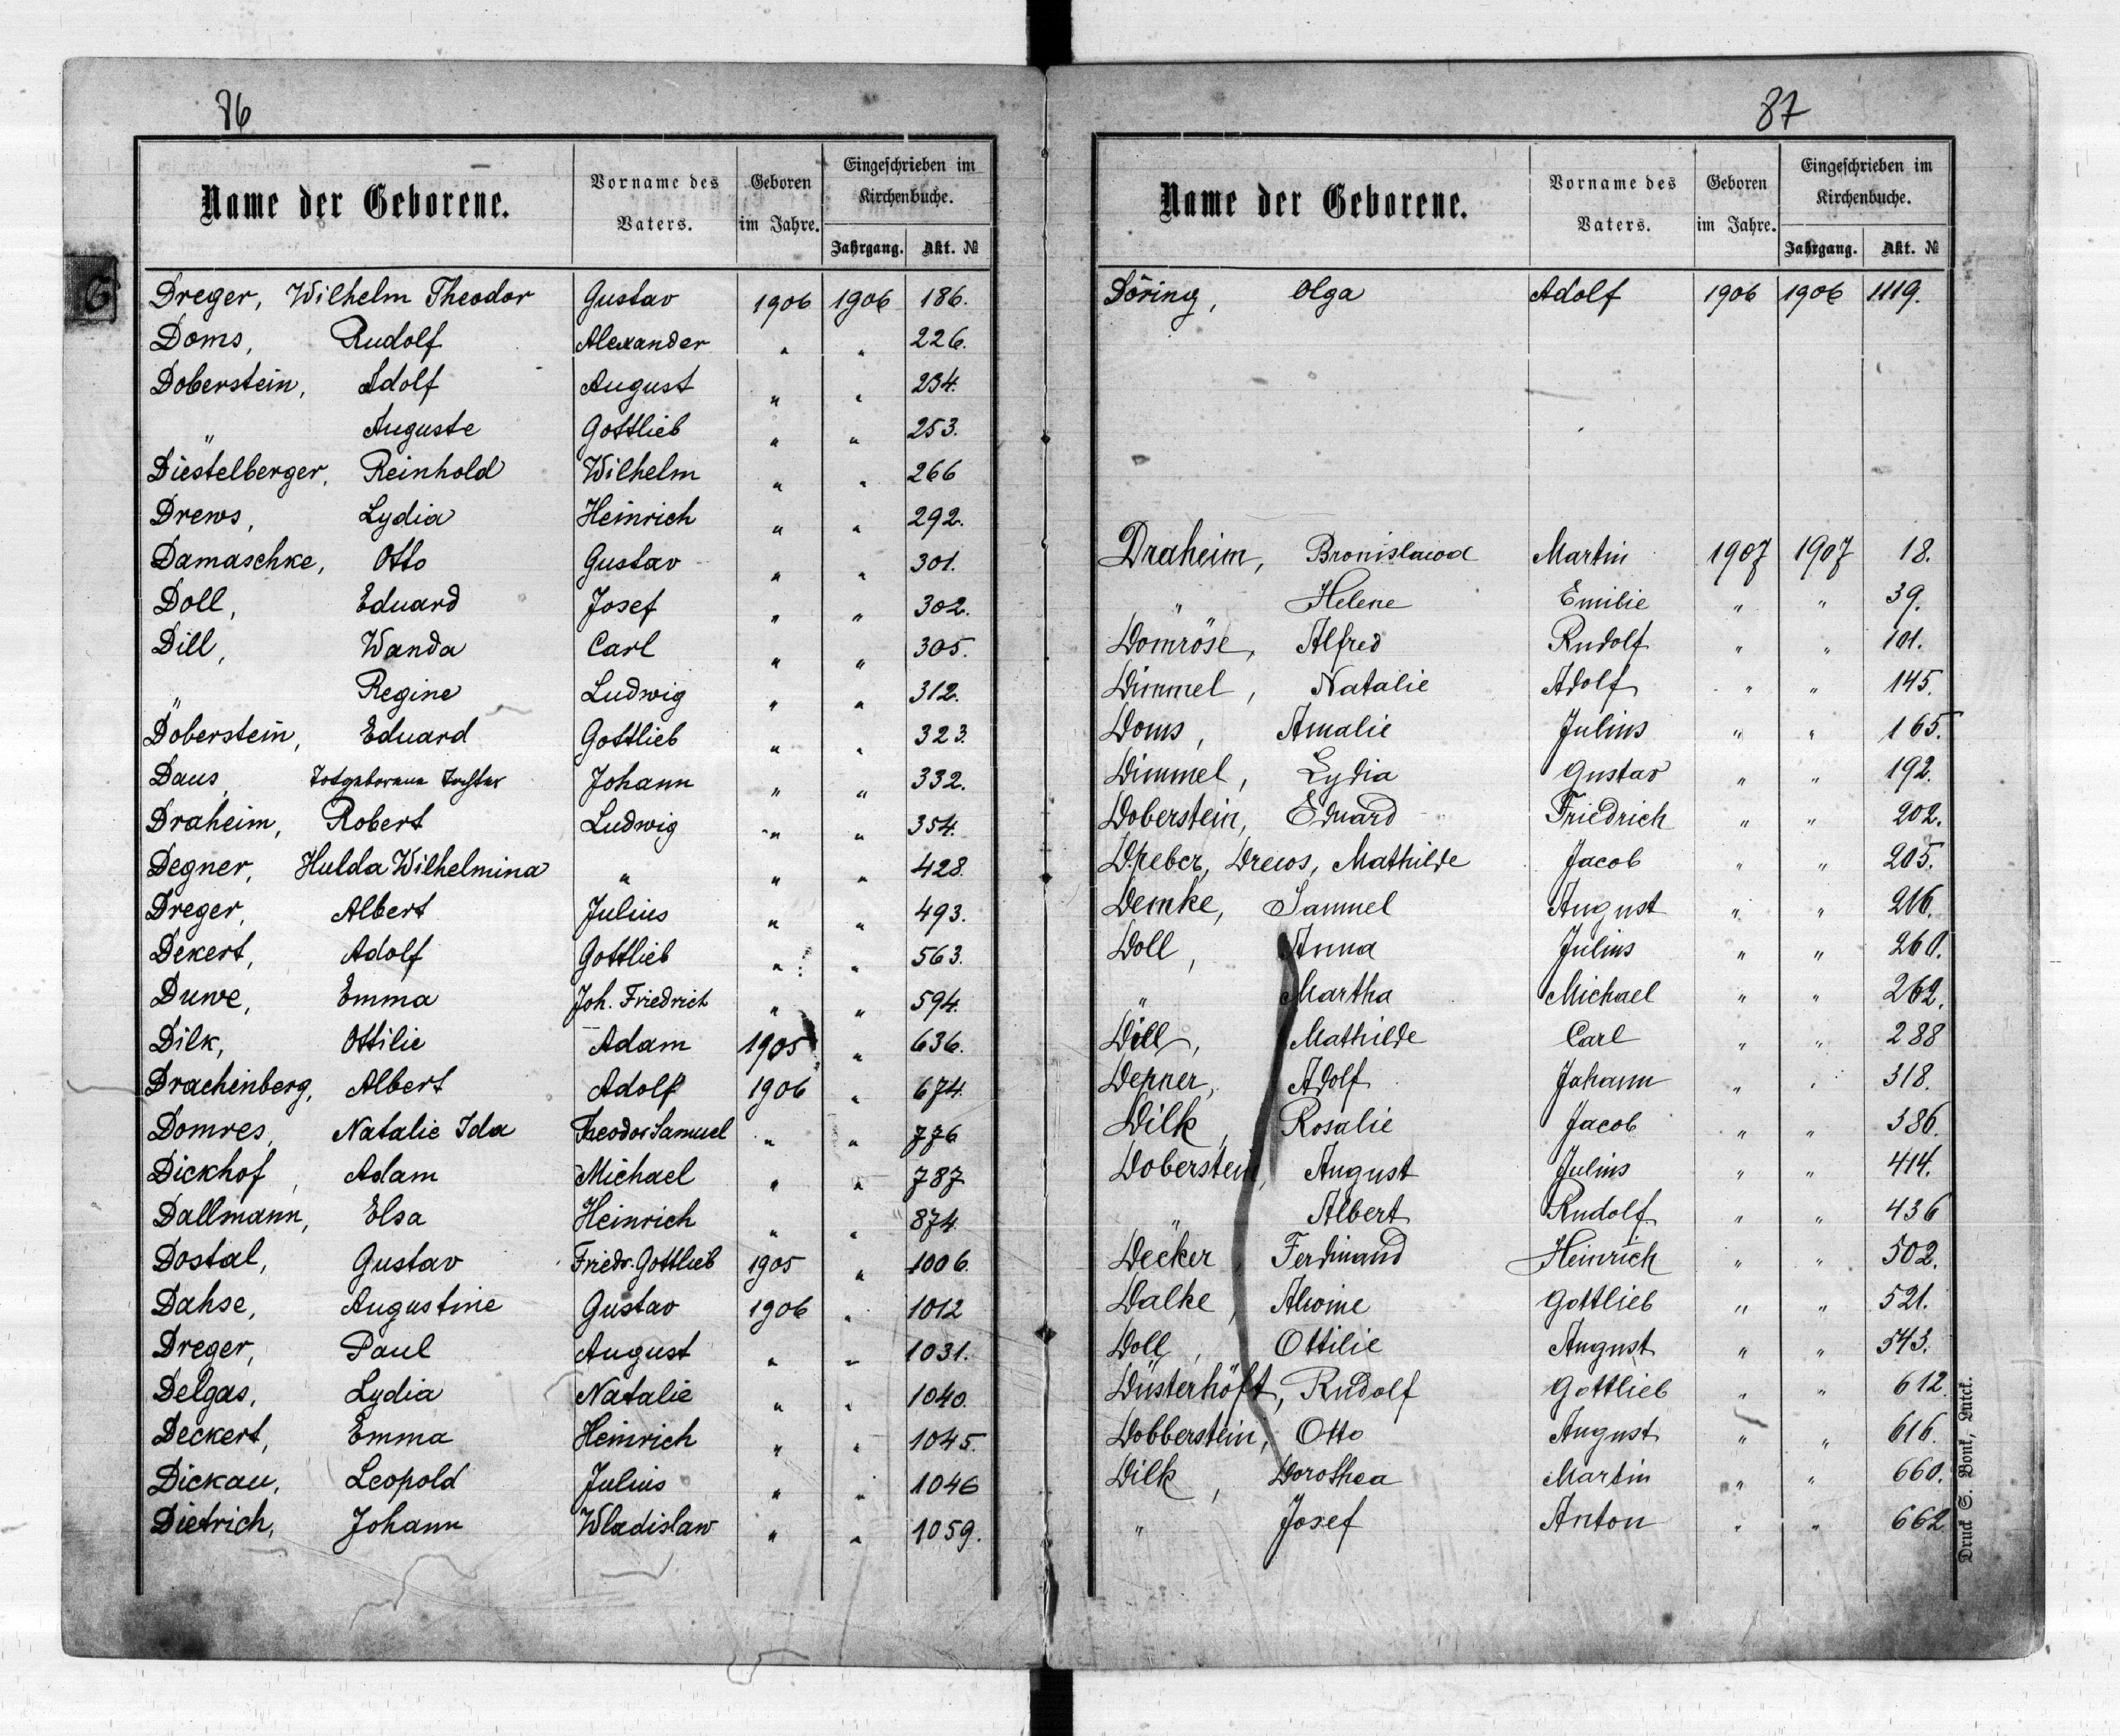 86
Name der Geborene. Vorname des Vaters. Geboren im Jahre. Eingeschrieben im Kirchenbuche. Jahrgang. Akt. №
Dreger, Wilhelm Theodor Gustav 1906 1906 186.
Doms, Rudolf Alexander " " 226.
Doberstein, Adolf August " " 234.
" Auguste Gottlieb " " 253.
Diestelberger, Reinhold Wilhelm " " 266
Drews, Lydia Heinrich " " 292.
Damaschke, Otto Gustav " " 301.
Doll, Eduard Josef " " 302.
Dill, Wanda Carl " " 305.
" Regine Ludwig " " 312.
Doberstein, Eduard Gottlieb " " 323.
Daus, Totgeborene Tochter Johann " " 332.
Draheim, Robert Ludwig " " 354.
Degner, Hulda Wilhelmina " " " 428.
Dreger, Albert Julius " " 493.
Dekert, Adolf Gottlieb " " 563.
Duwe, Emma Joh. Friedrich " " 594.
Dilk, Ottilie Adam 1905 " 636.
Drachenberg, Albert Adolf 1906 " 674.
Domres, Natalie Ida Theodor Samuel " " 776
Dickhof, Adam Michael " " 787
Dallmann, Elsa Heinrich " " 874.
Dostal, Gustav Friedr. Gottlieb 1905 " 1006.
Dahse, Augustine Gustav 1906 " 1012
Dreger, Paul August " " 1031.
Delgas, Lydia Natalie " " 1040.
Deckert, Emma Heinrich " " 1045.
Dickau, Leopold Julius " " 1046
Dietrich, Johann Wladislaw " " 1059.
87
Name der Geborene. Vorname des Vaters. Geboren im Jahre. Eingeschrieben im Kirchenbuche. Jahrgang. Akt. №
Döring, Olga Adolf 1906 1906 1119.
Draheim, Bronislawa Martin 1907 1907 18.
" Helene Emilie " " 39.
Domröse, Alfred Rudolf " " 101.
Dimmel, Natalie Adolf " " 145.
Doms, Amalie Julius " " 165.
Dimmel, Lydia Gustav " " 192.
Doberstein, Eduard Friedrich " " 202.
Drews, Mathilde Jacob " " 205.
Demke, Samuel August " " 216.
Doll, Anna Julius " " 260.
" Martha Michael " " 262.
Dill, Mathilde Carl " " 288
Depner, Adolf Johann " " 318.
Dilk, Rosalie Jacob " " 386.
Doberstein, August Julius " " 414.
" Albert Rudolf " " 436
Decker, Ferdinand Heinrich " " 502.
Dalke, Alwine Gottlieb " " 521.
Doll, Ottilie August " " 543.
Düsterhöft, Rudolf Gottlieb " " 612.
Dobberstein, Otto August " " 616.
Dilk, Dorothea Martin " " 660.
" Josef Anton " " 662
Druck S. Bont, Luck.